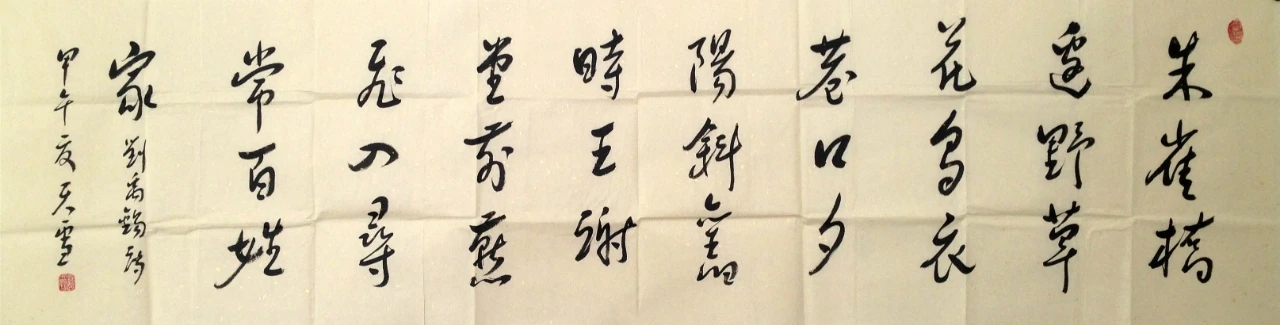 朱雀橋
邊野草
花烏衣
巷口夕
陽斜舊
時王謝
堂前燕
飛入尋
常百姓
家
劉禹錫詩
甲午夏天雪